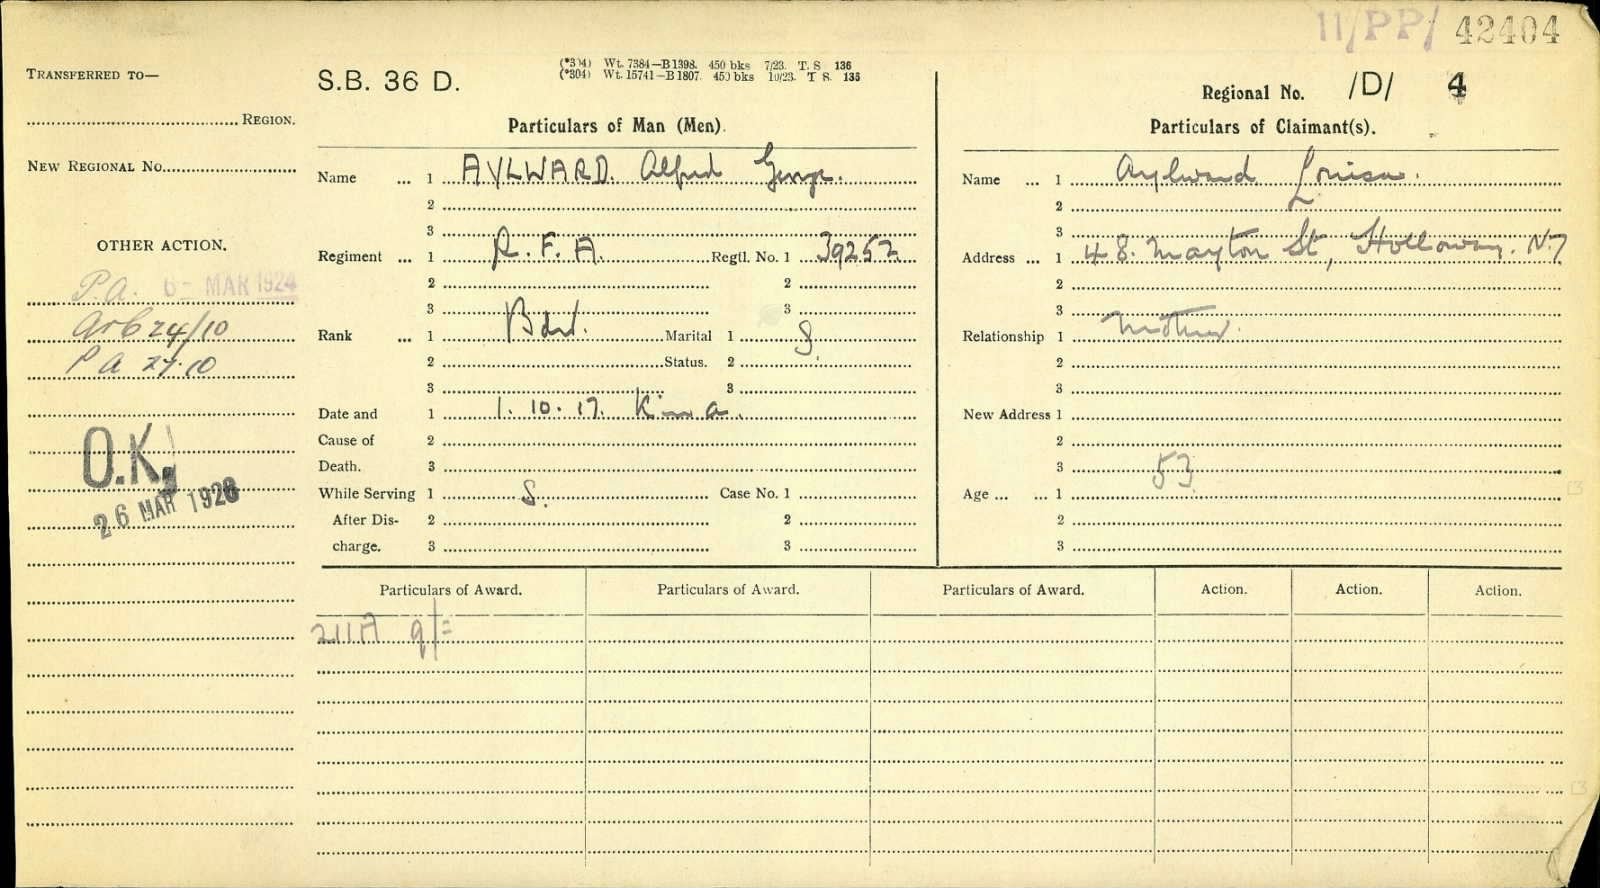 11/PP/ 42404
TRANSFERRED TO—
REGION.
NEW REGIONAL NO.
OTHER ACTION.
P.A. 6- MAR 1924
24/10
P A 27.10
O.K.
26 MAR 1926
S.B. 36 D.
(*304) Wt. 7384—B1398. 450 bks 7/23. T. S 136
(*304) Wt. 15741—B1807. 450 bks 10/23. T S. 136
Particulars of Man (Men).
Name ... 1 AYLWARD. Alfred George.
2
3
Regiment ... 1 R. F. A. Regtl. No. 1 39252
2 2
3 3
Rank ... 1 Bdr. Marital 1 S.
2 Status. 2
3 3
Date and 1 1. 10. 17. K in a.
Cause of 2
Death. 3
While Serving 1 S. Case No. 1
After Dis- 2 2
charge. 3 3
Regional No. /D/ 4
Particulars of Claimant(s).
Name ... 1 Aylward Louisa.
2
3
Address ... 1 48. Mayton St, Holloway. N.7
2
3
Relationship 1 Mother.
2
3
New Address 1
2
3
Age ... ... 1 53
2
3
Particulars of Award. Particulars of Award. Particulars of Award. Action. Action. Action.
211A 9/=